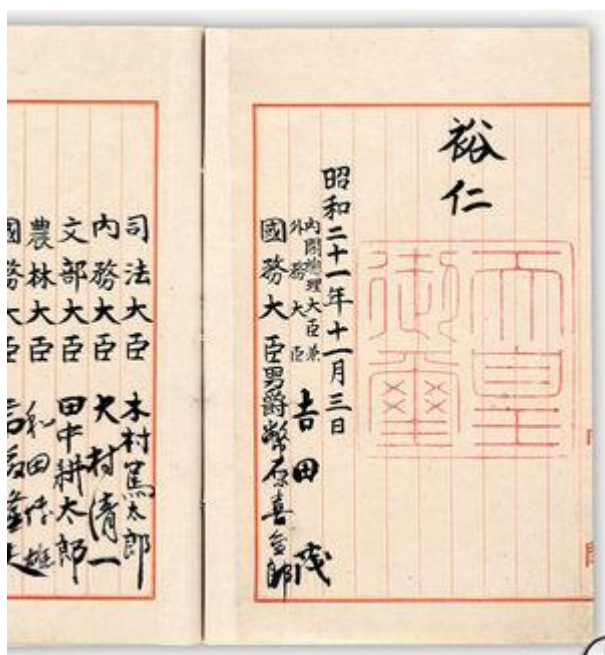 裕仁
天皇
御璽
昭和二十一年十一月三日
內閣總理大臣兼
外務大臣
吉田茂
國務大臣男爵幣原喜重郎
司法大臣木村篤太郎
內務大臣大村清一
文部大臣田中耕太郎
農林大臣和田博雄
國務大臣